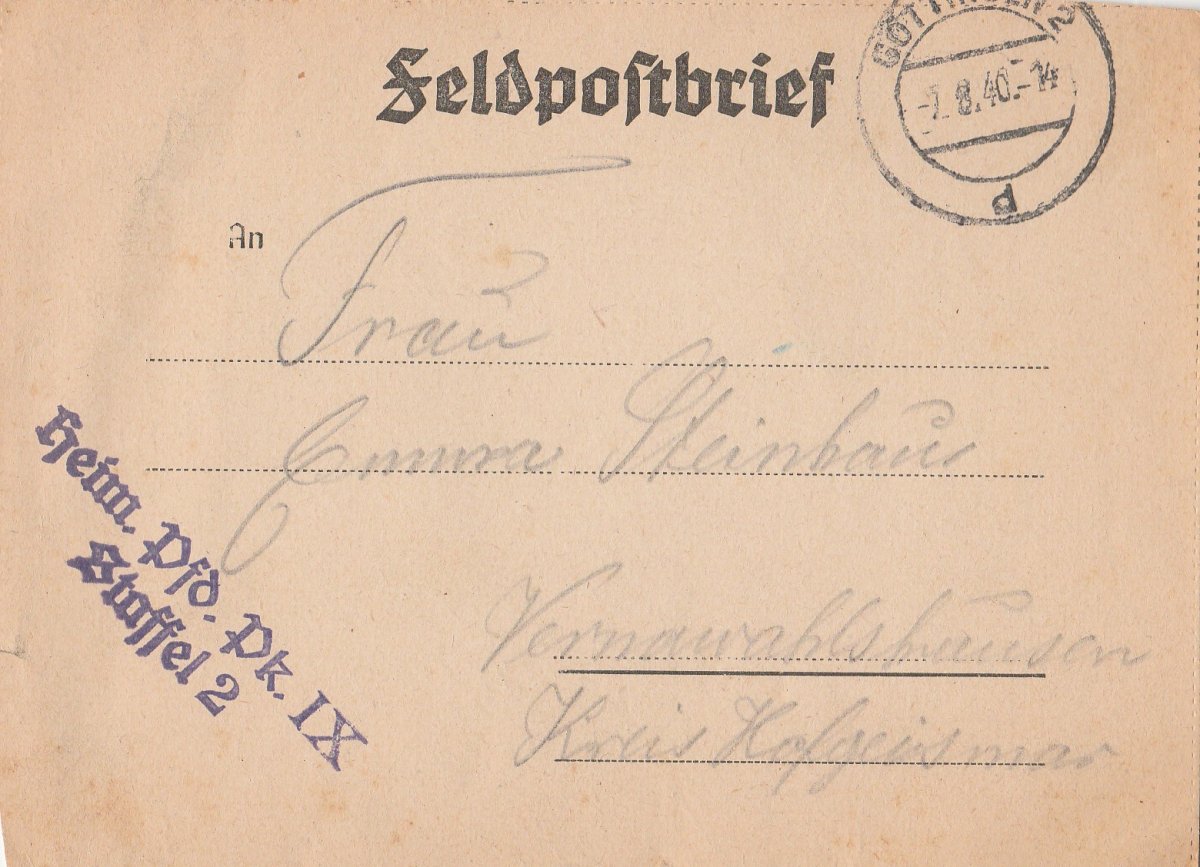 Feldpostbrief
GÖTTINGEN 2
-7.8.40.-14
d
An
Frau
Emma Steinhaus
Vernawahlshausen
Kreis Hofgeismar
Heim. Pfd. Pk. IX
Staffel 2